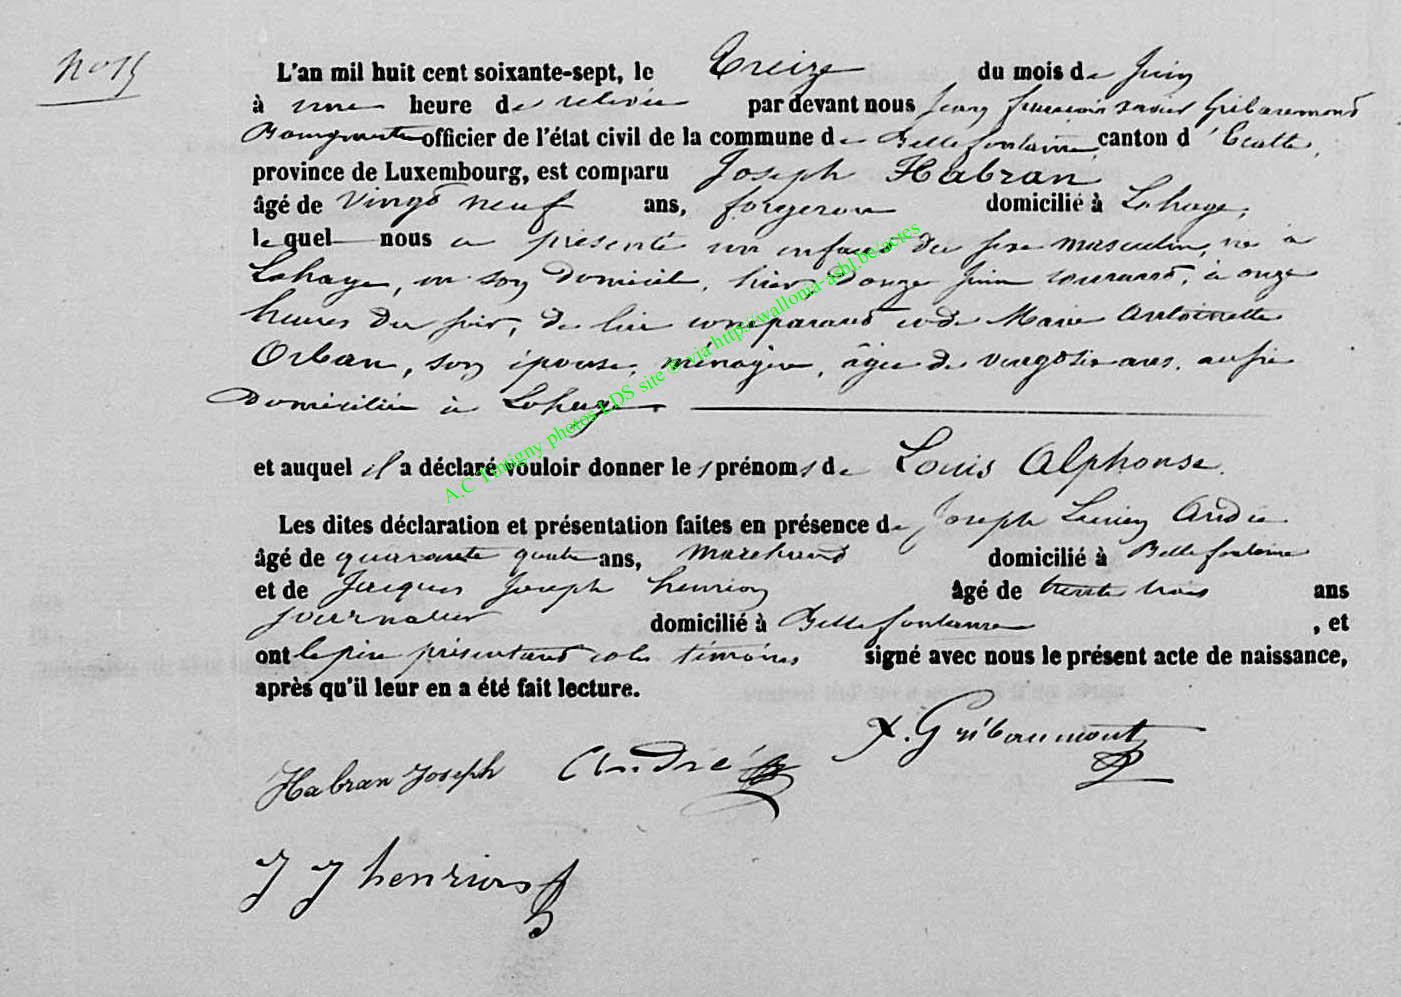 No 15
L'an mil huit cent soixante-sept, le Treize du mois de Juin
à une heure de relevée par devant nous Jean françois xavier Gribaumont
Bourgmestre officier de l'état civil de la commune de Bellefontaine, canton d'Etalle,
province de Luxembourg, est comparu Joseph Habran
âgé de vingt neuf ans, forgeron domicilié à Lahage,
lequel nous a présenté un enfant du sexe masculin, né à
Lahage, en son domicile, hier douze juin courant, à onze
heures du soir, de lui comparant et de Marie Antoinette
Orban, son épouse, ménagère, âgée de vingt six ans, aussi
domiciliée à Lahage.
et auquel il a déclaré vouloir donner les prénoms de Louis Alphonse.
Les dites déclaration et présentation faites en présence de Joseph Lucien André
âgé de quarante quatre ans, marchand domicilié à Bellefontaine
et de Jacques Joseph henrion âgé de trente trois ans
journalier domicilié à Bellefontaine, et
ont le père présentant et les témoins signé avec nous le présent acte de naissance,
après qu'il leur en a été fait lecture.
Habran Joseph André X. Gribaumont
J J henrion
A.C Tintigny photos LDS site via http//wallonia-asbl.be/actes